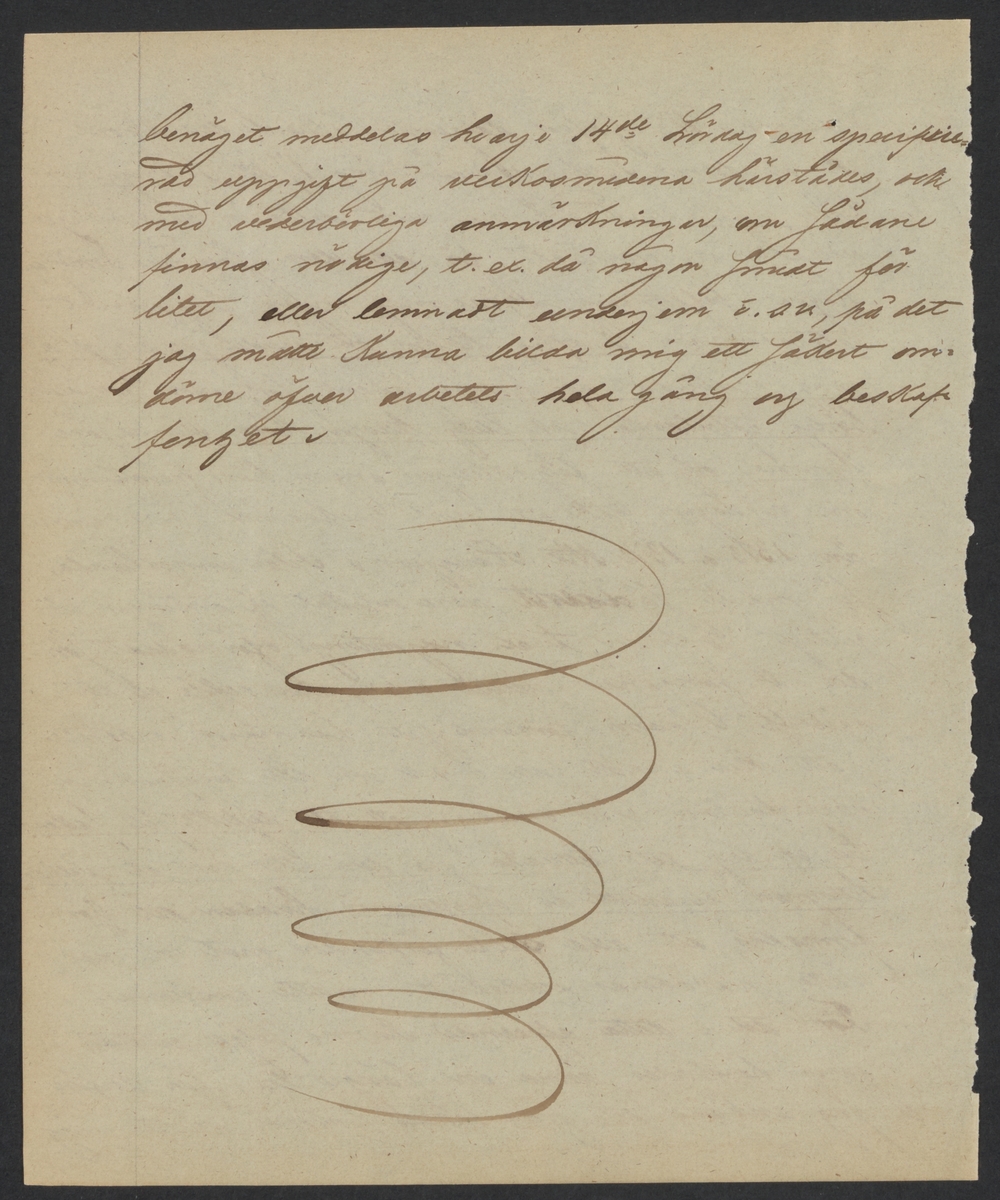 benäget meddelas hvarje 14de Lördag en specifice=
rad uppgift på verkosmidena härstädes, och
med vederbörliga anmärkningar, om sådane
finnas nödige, t. ex. då någon smidt för
litet, eller lemnadt underjern o. s. v., på det
jag måtte kunna bilda mig ett säkert om=
döme öfver arbetets hela gång og beskaf=
fenhet.